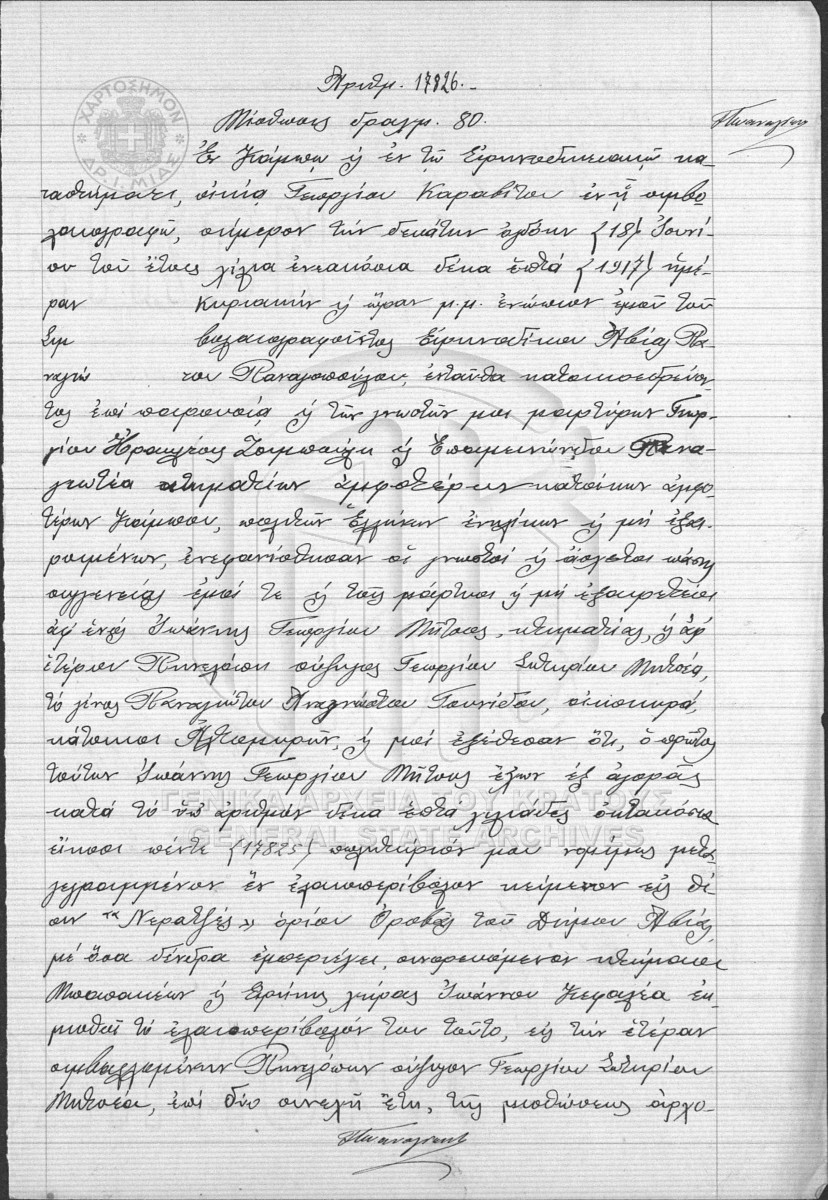 Ἀριθμ. 17826.-
ΧΑΡΤΟΣΗΜΟΝ
ΔΡ. 1. ΜΙΑΣ
Μίσθωσις δραχμ. 80.
Ἐν Κάμπῳ ἐν τῷ Εἰρηνοδικειακῷ κα-
ταστήματι, οἰκίᾳ Γεωργίου Καραβίτου ἐν ᾗ συμβο-
λαιογραφῶ, σήμερον τὴν δεκάτην ὀγδόην (18) Ἰουνί-
ου τοῦ ἔτους χίλια ἐνεακόσια δέκα ἑπτά (1917) ἡμέ-
ραν Κυριακὴν ὥραν μ.μ. ἐνώπιον ἐμοῦ τοῦ
Συμ βολαιογραφοῦντος Εἰρηνοδίκου Ἀβίας Πα-
ναγιώ του Παναγοπούλου, ἐνταῦθα κατοικοεδρεύον-
τος ἐπὶ παρουσίᾳ τῶν γνωστῶν μοι μαρτύρων Γεωρ-
γίου Ἡρακλέους καὶ Ἐπαμεινώνδου Πανα-
γεωτέα κτηματίων ἀμφοτέρων κατοίκων ἀμφο-
τέρων Κάμπου, πολιτῶν Ἑλλήνων ἐνηλίκων μὴ ἐξαι-
ρουμένων, ἐνεφανίσθησαν οἱ γνωστοὶ ἄσχετοι πάσης
συγγενείας ἐμοί τε τοῖς μάρτυσι μὴ ἐξαιρετέοι
ἀφ' ἑνὸς Ἰωάννης Γεωργίου Μῆτσος, κτηματίας, ἀφ'
ἑτέρου Πηνελόπη σύζυγος Γεωργίου Σωτηρίου Μητσέα,
τὸ γένος Παναγιώτου Ἀναγνώστου, οἰκοκυρά,
κάτοικοι Ἀλτομυρῶν, μοὶ ἐξέθεσαν ὅτι, ὁ πρῶτος
τούτων Ἰωάννης Γεωργίου Μῆτσος ἔχων ἐξ ἀγορᾶς
κατὰ τὸ ὑπ' ἀριθμὸν δέκα ἑπτὰ χιλιάδες ὀκτακόσια
εἴκοσι πέντε (17825) πωλητήριόν μου νομίμως μετα-
γεγραμμένον ἓν ἐλαιοπερίβολον κείμενον εἰς θέ-
σιν "Νερατζές" ὁρίου Ὀροβᾶς τοῦ Δήμου Ἀβίας,
μὲ ὅσα δένδρα ἐμπεριέχει, συνορευόμενον κτήμασι
Μπαπακέων Εἰρήνης χήρας Ἰωάννου Κεφαλέα ἐκ-
μισθοῖ τὸ ἐλαιοπερίβολόν του τοῦτο, εἰς τὴν ἑτέραν
συμβαλλομένην Πηνελόπην σύζυγον Γεωργίου Σωτηρίου
Μητσέα, ἐπὶ δύο συνεχῆ ἔτη, τῆς μισθώσεως ἀρχο-
ΓΕΝΙΚΑ ΑΡΧΕΙΑ ΤΟΥ ΚΡΑΤΟΥΣ
GENERAL STATE ARCHIVES